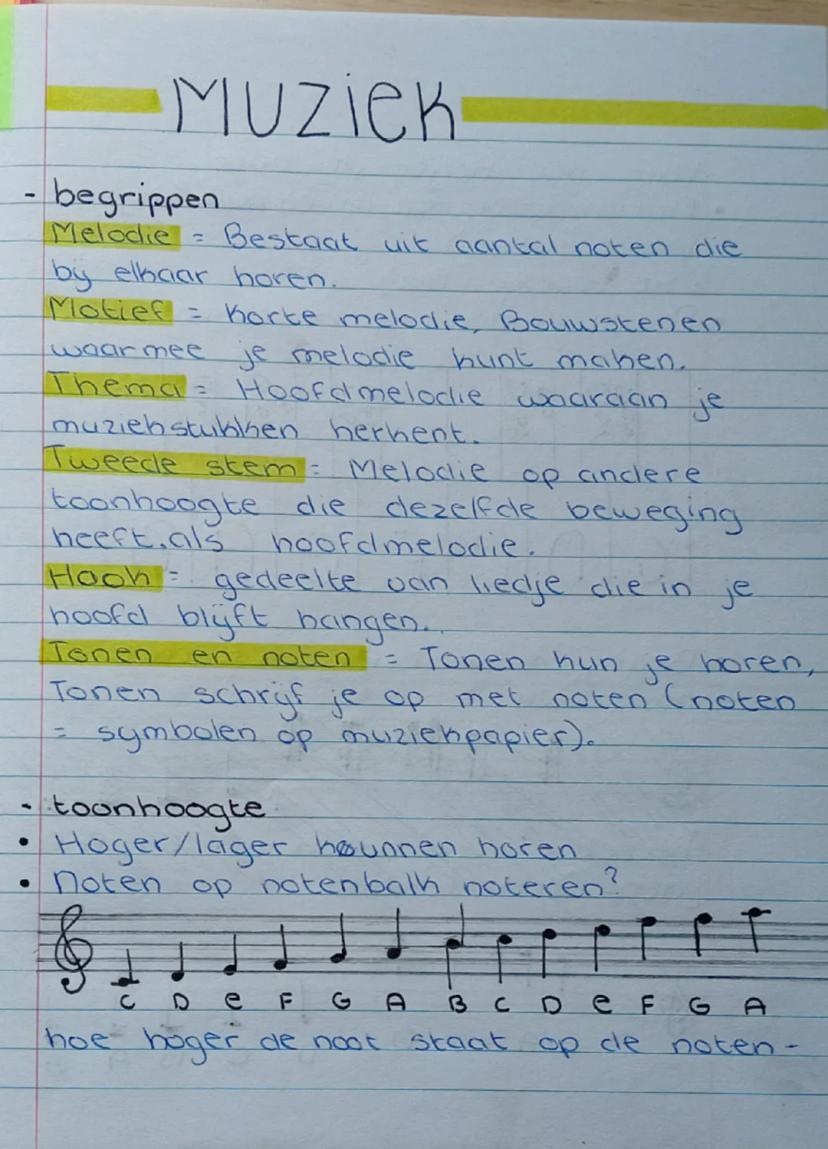 MUZieK
- begrippen
Melodie = Bestaat uit aantal noten die
bij elkaar horen.
Motief = Korte melodie, Bouwstenen
waarmee je melodie kunt maken.
Thema = Hoofdmelodie waaraan je
muziekstukken herkent.
Tweede stem = Melodie op andere
toonhoogte die dezelfde beweging
heeft als hoofdmelodie.
Hook = gedeelte van liedje die in je
hoofd blijft hangen.
Tonen en noten = Tonen kun je horen,
Tonen schrijf je op met noten (noten
= symbolen op muziekpapier).
- toonhoogte
• Hoger/lager kunnen horen
• Noten op notenbalk noteren?
C D e F G A B C D e F G A
hoe hoger de noot staat op de noten-